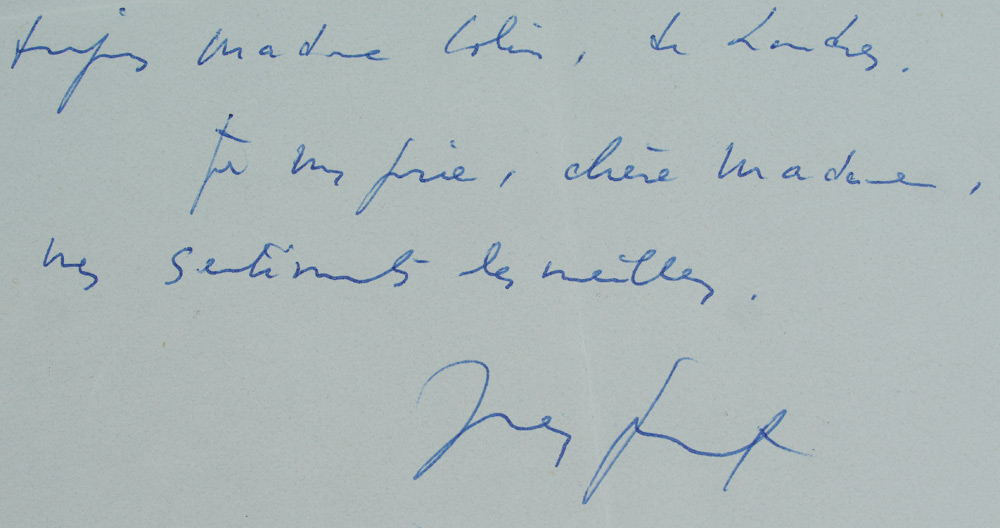 toujours Madame Colin, de Londres.
Je vous prie, chère Madame,
mes sentiments les meilleurs.